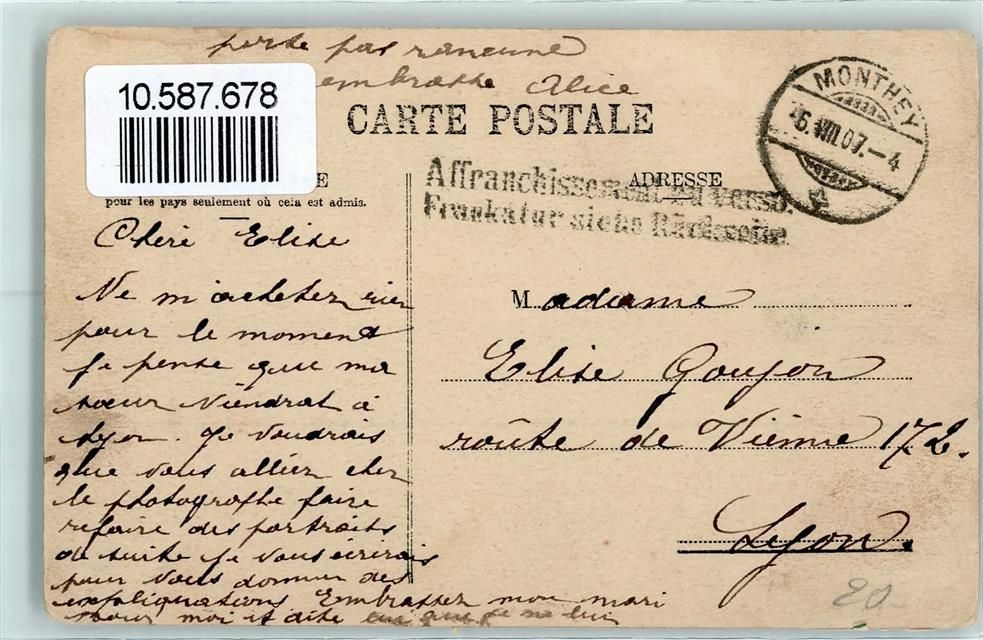 porte pas rancune
embrasse Alice
10.587.678
CARTE POSTALE
MONTHEY
6.VIII.07.-4
E
ADRESSE
pour les pays seulement où cela est admis.
Affranchissement au verso.
Frankatur siehe Rückseite
Chère Elise
Ne m'achetez rien
pour le moment
je pense que ma
sœur Viendrat à
Lyon. Je voudrais
que vous alliez chez
le photographe faire
refaire des portraits
de suite je vous écrirais
pour vous donner des
expliquations Embrassez mon mari
pour moi et dite lui que je ne lui
Madame
Elise Goujon
route de Vienne 172.
Lyon.